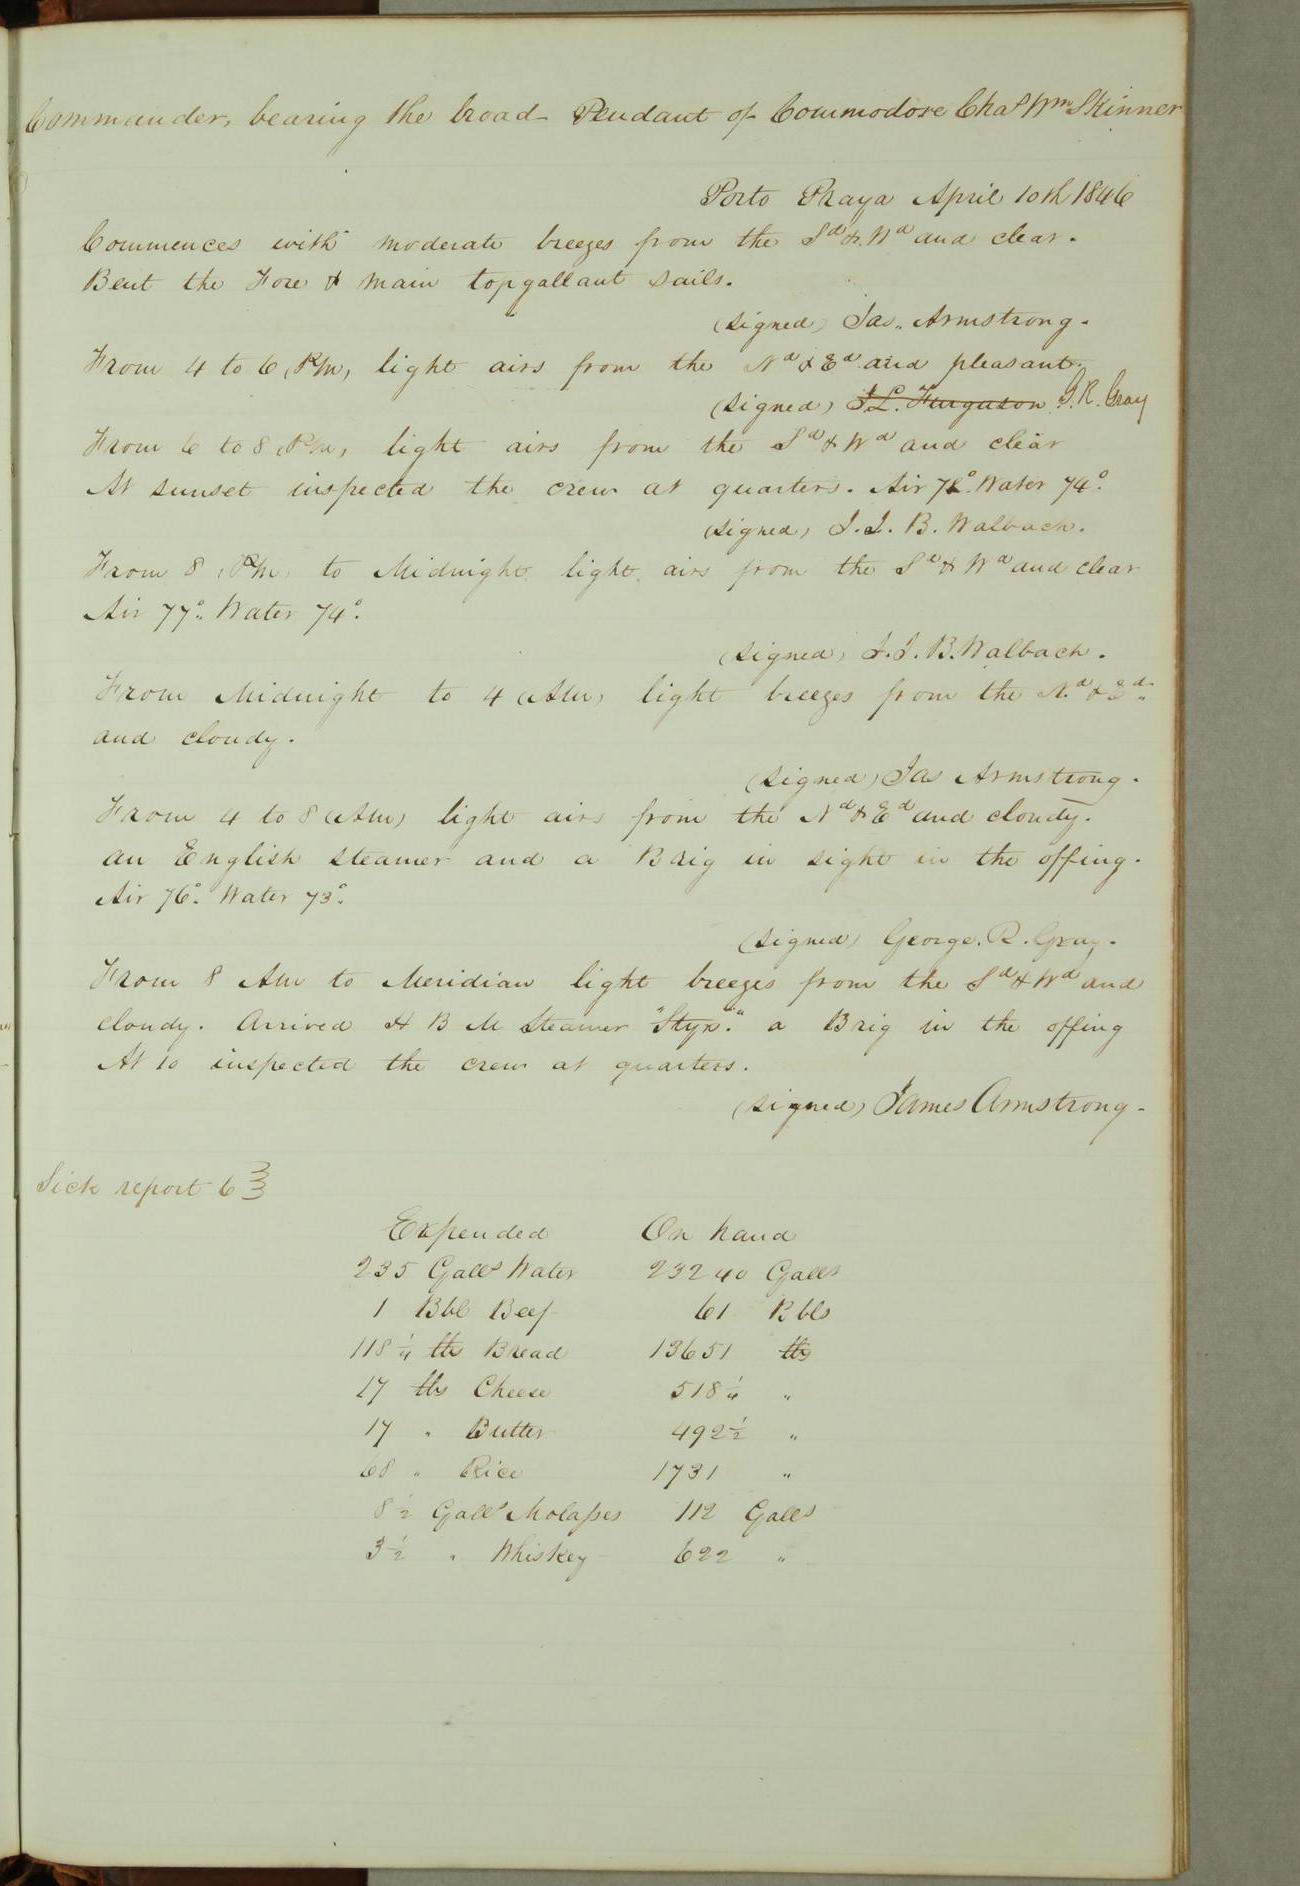 Commander, bearing the broad Pendant of Commodore Chas Wm Skinner
Porto Praya April 10th 1846
Commences with moderate breezes from the Sd & Wd and clear.
Bent the Fore & Main topgallant sails.
(signed) Jas. Armstrong.
From 4 to 6 (PM) light airs from the Nd & Ed and pleasant.
(signed) J.L. Furguson G.R. Gray
From 6 to 8 (PM) light airs from the Sd & Wd and clear
At sunset inspected the crew at quarters. Air 78° Water 74°.
(signed) J.J.B. Walbach.
From 8 (PM) to Midnight light airs from the Sd & Wd and clear
Air 77°. Water 74°.
(signed) J.J.B. Walbach.
From Midnight to 4 (AM) light breezes from the Nd & Ed
and cloudy.
(signed) Jas Armstrong.
From 4 to 8 (AM) light airs from the Nd & Ed and cloudy.
an English steamer and a Brig in sight in the offing.
Air 76°. Water 73°.
(signed) George. R. Gray.
From 8 AM to Meridian light breezes from the Sd & Wd and
cloudy. Arrived H B M Steamer "Styx." a Brig in the offing
At 10 inspected the crew at quarters.
(signed) James Armstrong.
Sick report 6 }
Expended On hand
235 Galls Water 23240 Galls
1 Bbl Beef 61 Bbls
118 1/4 lbs Bread 13651 lbs
17 lbs Cheese 518 1/4 "
17 " Butter 492 1/2 "
68 " Rice 1731 "
8 1/2 Galls Molasses 112 Galls
3 1/2 " Whiskey 622 "